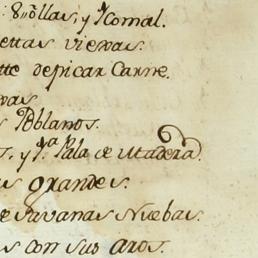 : 8,,, ollas, y 1 Comal.
ettas viexas.
tte de picar Carne.
xas
s Poblanos.
s, y 1.ª Pala de Madera.
as grandes.
e Savanas Nuebas.
s con sus aros.